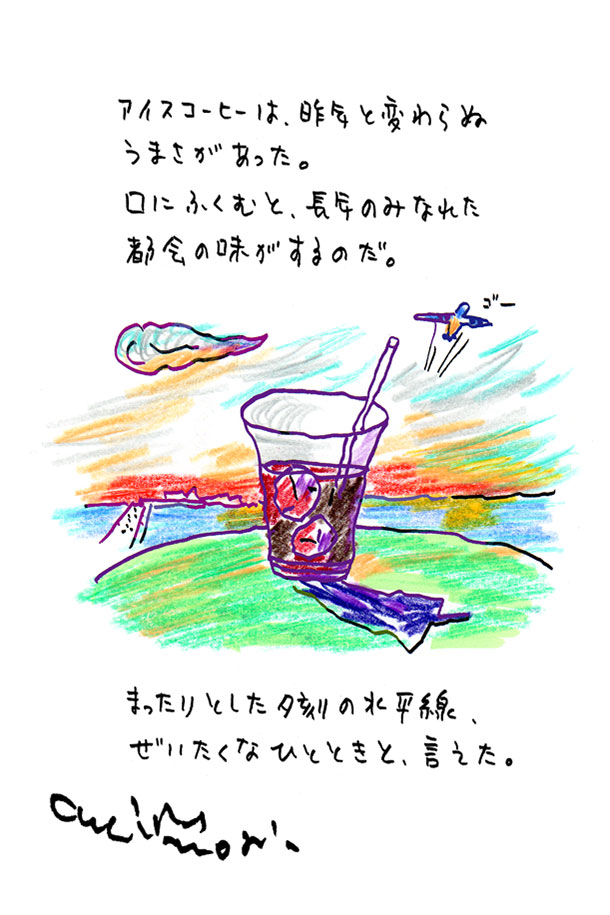 アイスコーヒーは、昨年と変わらぬ
うまさがあった。
口にふくむと、長年のみなれた
都会の味がするのだ。
ゴー
まったりとした夕刻の水平線、
ぜいたくなひとときと、言えた。